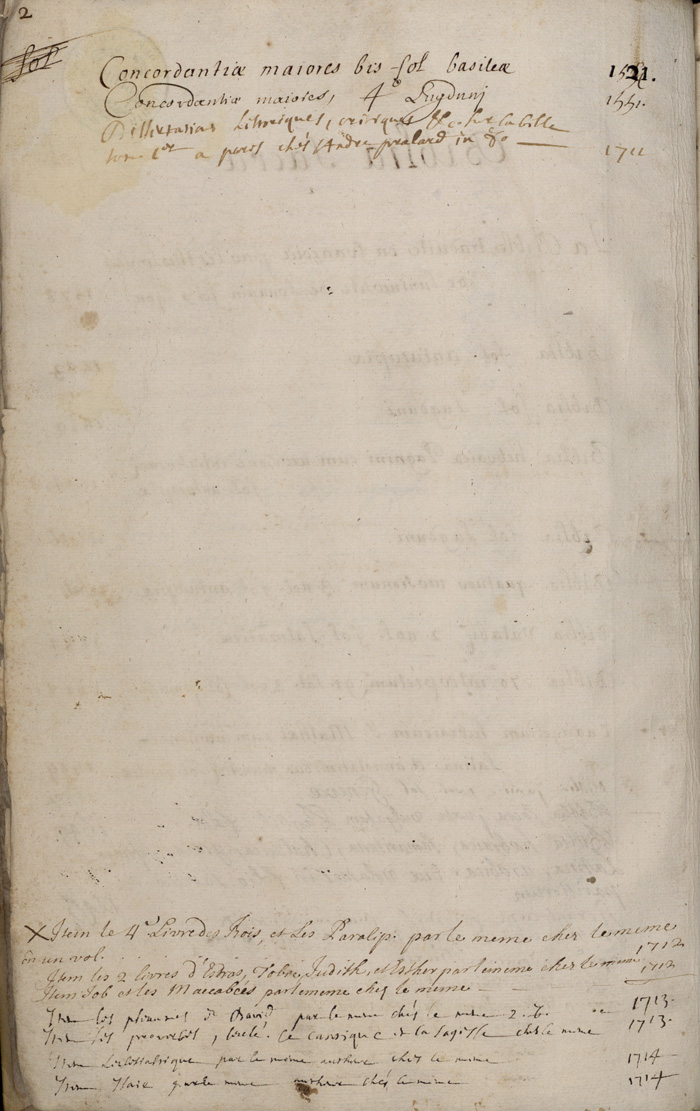 2
fol
Concordantiæ maiores bis fol basileæ 1521.
Concordantiæ maiores, 4° Lugduni 1551.
Dissertations historiques, critiques &c. sur la bible
tom 1er a paris chés André pralard in 8o 1711
X Item le 4e Livre des Rois, et Les Paralip. par le meme chez le meme
en un vol. 1712
Item les 2 livres d'Esdras, Tobie, Judith, et Esther par le meme chez le meme 1712
Item Job et les Maccabées par le meme chez le meme
Item les pseaumes de David par le meme chés le meme 2. 1713.
Item les proverbes, le cantique et la sagesse chés le meme 1713.
Item L'ecclesiastique par le meme autheur chez le meme 1714
Item Isaie par le meme autheur chés le meme 1714